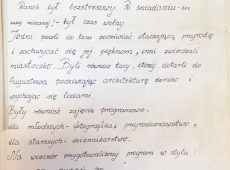 Ranek był bezstresowy. Po śniadaniu - bez
był czas wolny
Jedni poszli do lasu podziwiać otaczającą przyrodę
i zachwycać się jej pięknem, inni zwiedzali
miasteczko. Byli również tacy, którzy dotarli do
Augustowa podziwiając architekturę domów i
się lodami.
Były również zajęcia programowe:
dla młodszych - fotografika i przyrodoznawstwo,
dla starszych - dziennikarstwo.
Na wieczór przygotowaliśmy program w stylu